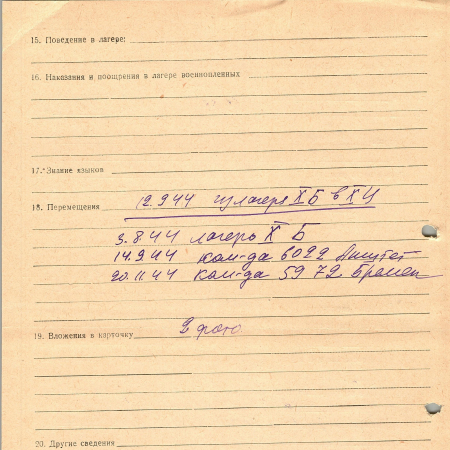 15. Поведение в лагере:
16. Наказания и поощрения в лагере военнопленных
17. Знание языков
18. Перемещения 12.9.44 из лагеря X Б в X
3.8.44 лагерь X Б
14.9.44 ком-да 6022
20.11.44 ком-да 5972 Бремен
19. Вложения в карточку 2 фото
20. Другие сведения